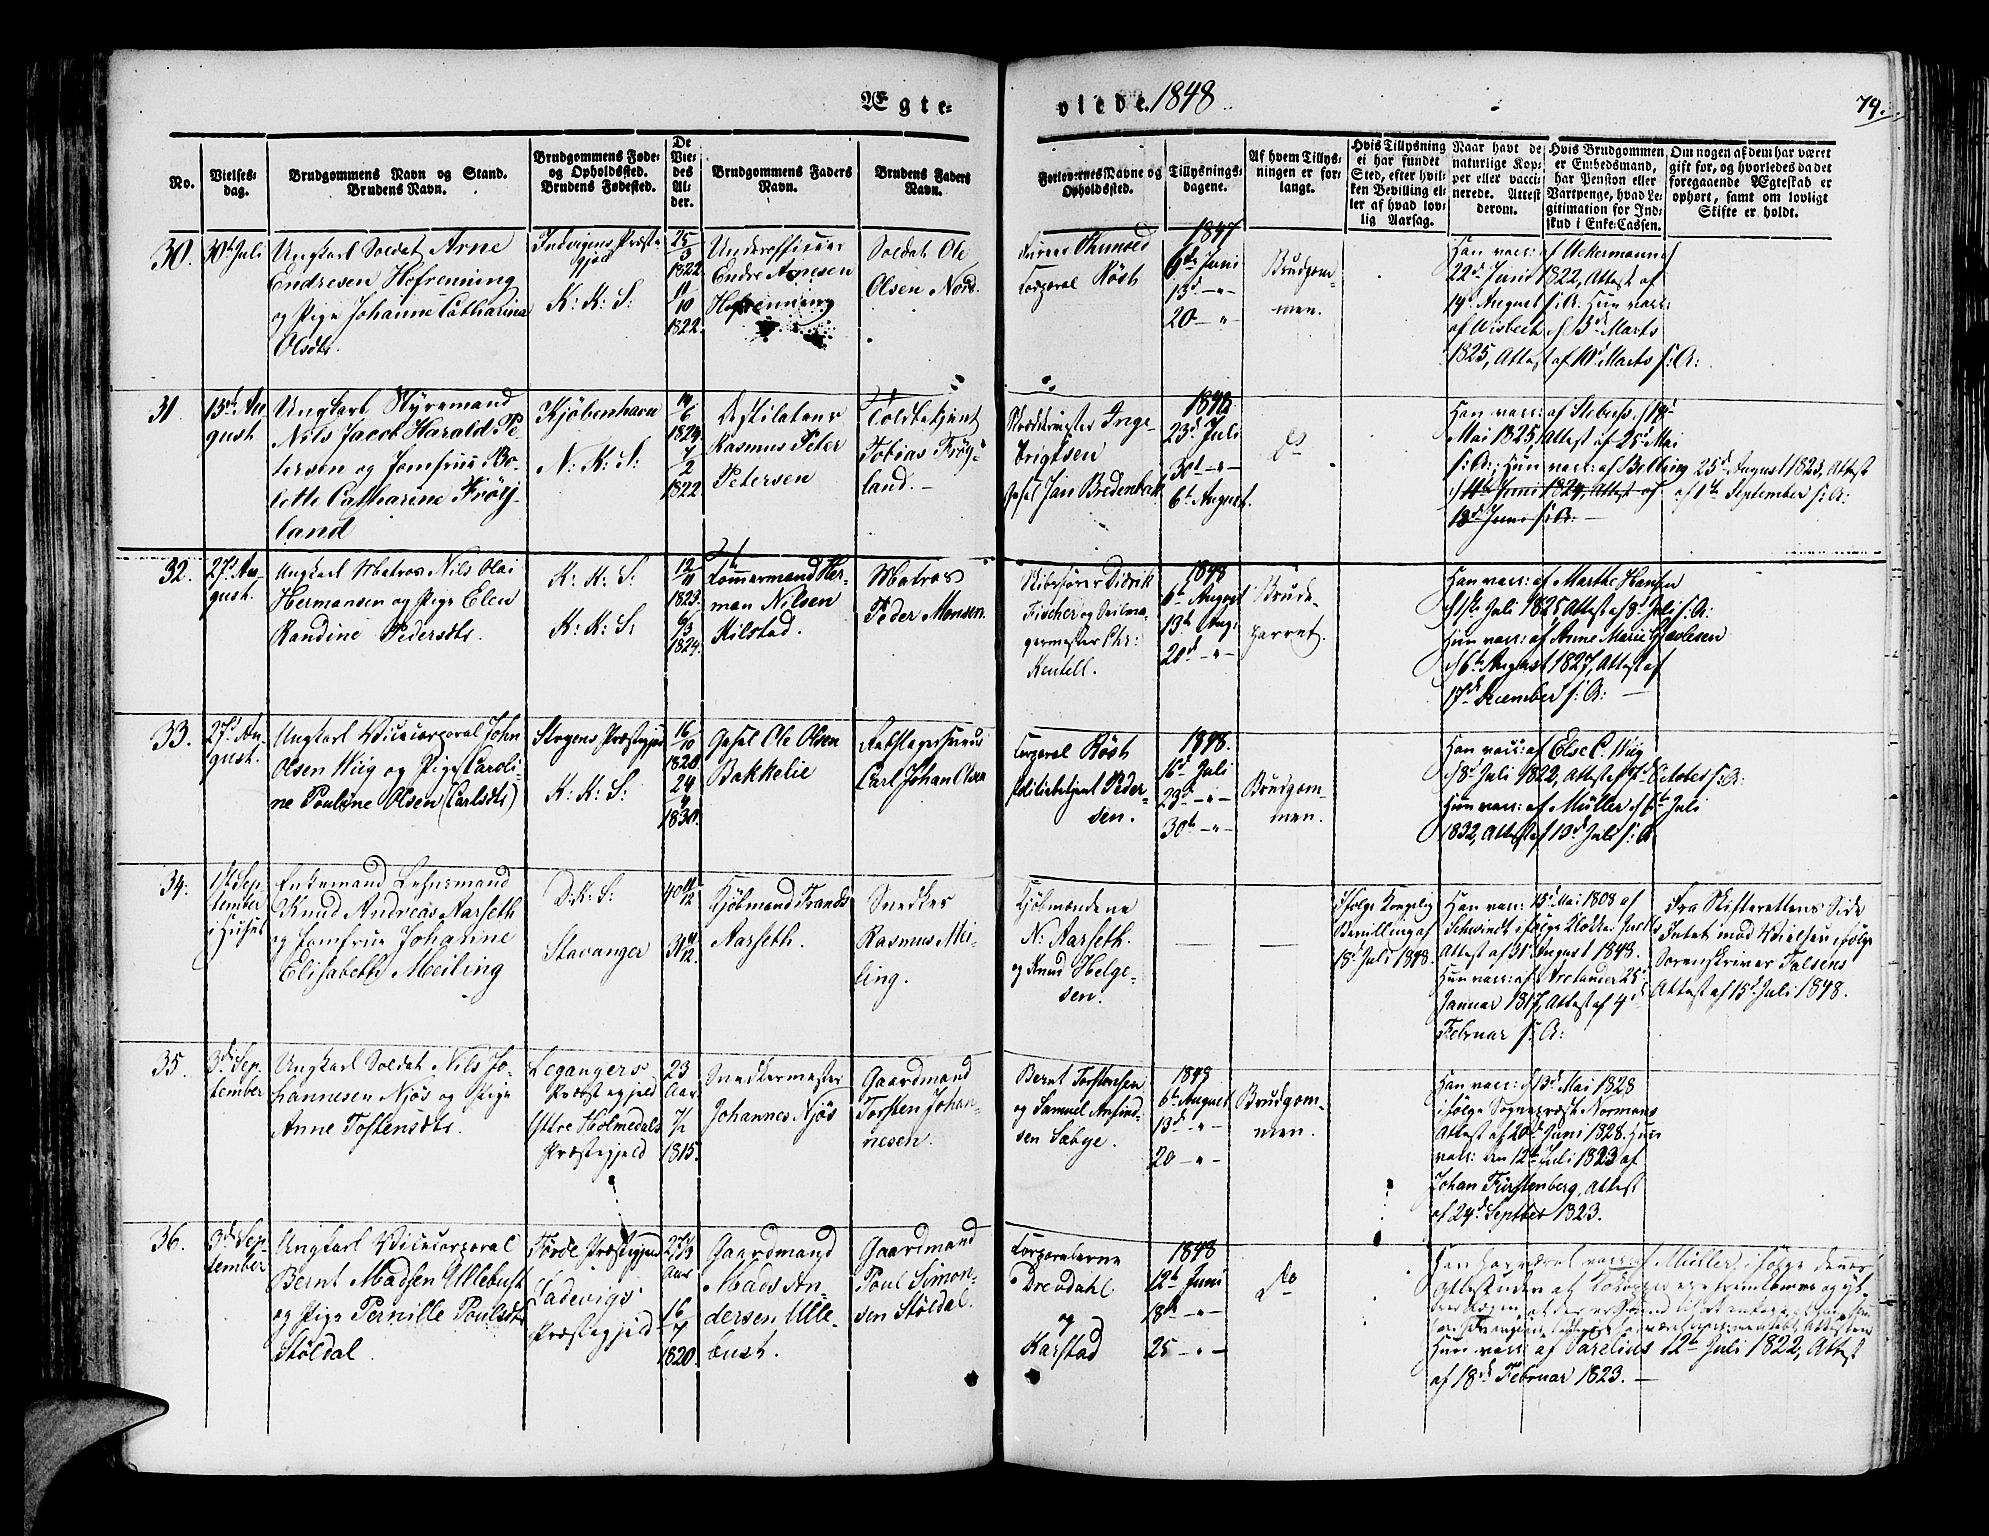 Ægteviede. 1848
79.
No.
Vielses-
dag.
Brudgommens Navn og Stand.
Brudens Navn.
Brudgommens Føde-
og Opholdssted.
Brudens Fødested.
De
Vie-
des
Al-
der.
Brudgommens Faders
Navn.
Brudens Faders
Navn.
Forlovernes Navne og
Opholdssted.
Tillysnings-
dagene.
Af hvem Tillys-
ningen er for-
langt.
Hvis Tillysning
ei har fundet
Sted, efter hvil-
ken Bevilling el-
ler af hvad lov-
lig Aarsag.
Naar havt de
naturlige Kop-
per eller vacci-
nerede. Attest
derom.
Hvis Brudgommen
er Embedsmand,
har Pension eller
Vartpenge, hvad Le-
gitimation for Ind-
skud i Enke-Cassen.
Om nogen af dem har været
gift før, og hvorledes da det
foregaaende Ægteskab er
ophørt, samt om lovligt
Skifte er holdt.
30.
30te Juli
Ungkarl Soldat Arne
Endresen Hefrenning
og Pige Johanne Catharina
Olsdtr.
Indvigens Præste
gjeld
K: K: S:
25/3
1822
11/10
1822.
Underofficeer
Endre Arnesen
Hefrenning
Soldat Ole
Olsen Nord.
Corporal Röst
1847
6te Juni
13d - " -
20 - "
Brudgom-
men.
Han vacc: af Ackermann
22d Juni 1822, Attest af
14d August s: A: Hun vacc:
af Wisbech d 3d Marts
1825, Attest af 10d Marts s: A:
31
15d Au
gust
Ungkarl Styrmand
Nils Jacob Harald Pe-
tersen og Jomfrue Bo-
lette Catharine Fröy-
land
Kjöbenhavn
N: K: S:
14/6
1824
7/2
1822
Destilateur
Rasmus Peter
Petersen
Toldbetjent
Tobias Fröy-
land. -
Skræddermester Inge-
brigtsen
Gesel Jan Bredenbek
1848
23d Juli
30te - " -
6te August.
do
Han vacc: af Stebuss, d 18d
Mai 1825, Attest af 25d Mai
s: A: Hun vacc: af Bolling 25d August 1823, Attest
d 4de Juni 1824, Attest af af 1te September s: A:
18d Juni s: A: -
32.
27d Au-
gust.
Ungkarl Matros Nils Olai
Hermansen og Pige Elen
Randine Pedersdtr.
K: K: S:
K: K: S:
12/11
1823.
6/3
1824.
Tömmermand Her-
man Nilsen
Kilstad.
Matros
Peder Monsen
Skibsförer Didrik
Fischer og Seilma-
germester Chr:
Kentell.
1848
6te August
13de Aug:
20d - " -
Brude-
parret.
Han vacc: af Marthe Hansen
d 1ste Juli 1825, Attest af 8d Juli s: A:
Hun vacc: af Anne Marie Gavlesen
d 6te August 1827, Attest af
17d December s: A: -
33.
27d Au-
gust.
Ungkarl Vicecorporal John
Olsen Wiig og Pige Caroli-
ne Pouline Olsen (Carlsdtr)
Skogens Præstegjeld
K: K: S:
16/10
1820
24/4
1830.
Gesel Ole Olsen
Bakkelie
Rebslagersvend
Carl Johan Olsen
Corporal Röst
Politiebetjent Peder-
sen.
1848.
16d Juli
23d - " -
30te - " -
Brudgom-
men.
Han vacc: af Else C. Wiig
d 8d Juli 1822, Attest af 7d October s: A:
Hun vacc: af Müller d 6te Juli
1832, Attest af 13d Juli s: A:
34.
1ste Sep-
tember
i Huset
Enkemand Lehnsmand
Knud Andreas Aarseth
og Jomfrue Johanne
Elisabeth Meiling
D: K: S:
Stavanger
40 11/12
31 4/12
Kjöbmand Trands
Aarseth.
Snedker
Rasmus Mei-
ling.
Kjöbmændene
N: Aarseth.
og Knud Helge-
sen.
Ifølge Kongelig
Bevilling af
18d Juli 1848.
Han vacc: 15d Mai 1808 af
Schwindt ifølge Klokker Juells
Attest af 31d August 1848.
Hun vacc: af Arctander 25d
Januar 1817, Attest af 4d
Februar s: A:
Fra Skifterettens Side
Intet mod Vielsen ifølge
Sorenskriver Falsens
Attest af 15d Juli 1848.
35.
3d Sep-
tember
Ungkarl Soldat Nils Jo-
hannesen Njös og Pige
Anne Tostensdtr.
Leganger
Præstegjeld
Yttre Holmedals
Præstegjeld
23
Aar
7/1
1815.
Snedkermester
Johannes Njös
Gaardmand
Torsten Johan-
nesen.
Bernt Torstensen
og Samuel Anfind-
sen Sæbye.
1848
6te August
13d - " -
20 - " -
Brudgom-
men.
Han vacc: d 13d Mai 1828
ifølge Sognepræst Normans
Attest af 20d Juni 1828. Hun
vacc: den 12te Juli 1823 af
Johan Fürstenberg, Attest
af 24d Septber 1823.
36.
3d Sep-
tember
Ungkarl Vicecorporal
Bernt Madsen Ullebust
og Pige Pernille Poulsdtr
Stöldal.
Förde Præstegjeld
Ladevigs
Præstegjeld
27 1/3
Aar
16/7
1820
Gaardmand
Mads An-
dersen Ulle-
bust.
Gaardmand
Poul Simon-
sen Stöldal.
Corporalerne
Drevdahl
og
Karstad
1848
12te Juni
18de - " -
25 - " -
do
Han har været vacc: af Müller, ifølge
Hun vacc: af Sarelius 12te Juli 1822, Attest
af 18d Februar 1823. -